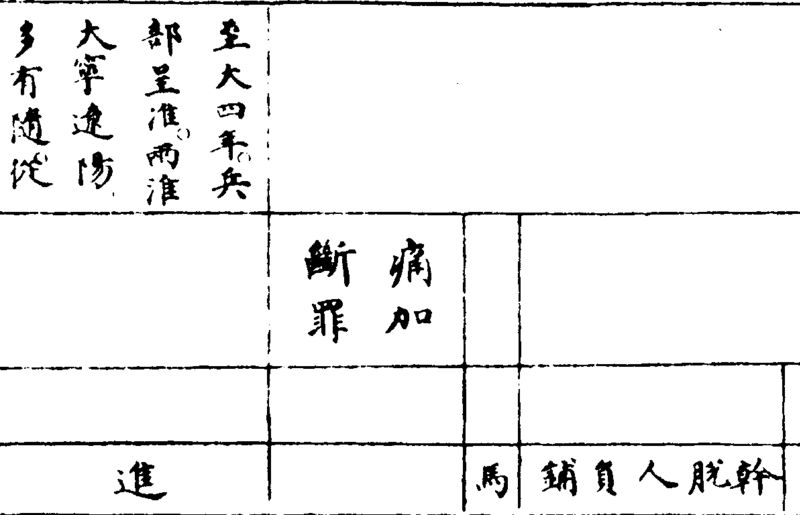 至大四年兵
部呈准兩淮
大寧遼陽
多有隨從
痛加
斷罪
幹脫人負鋪
馬
進